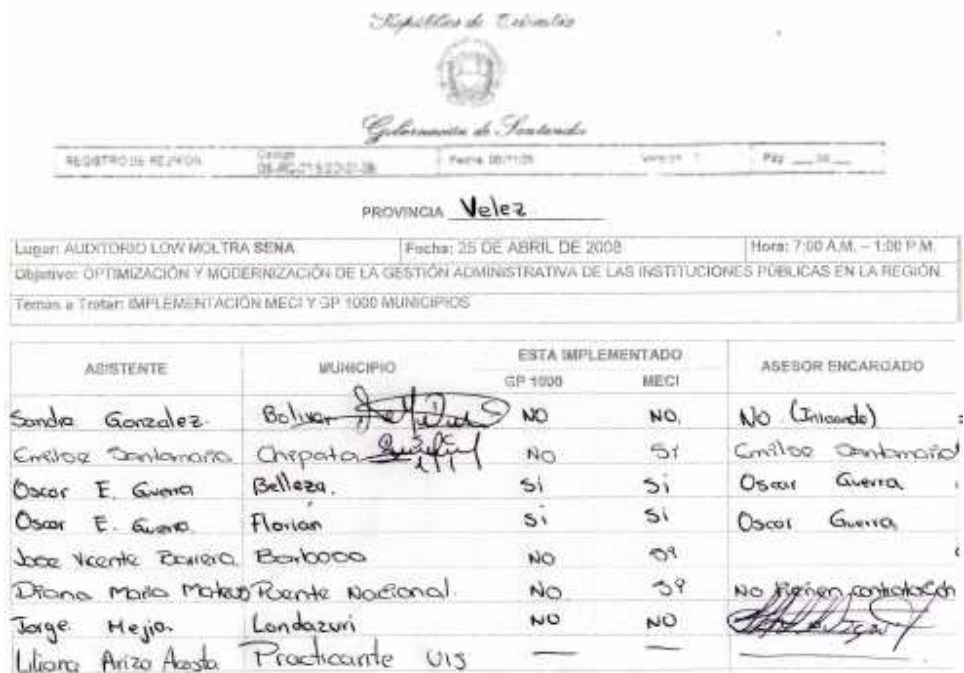 República de Colombia
Gobernación de Santander
REGISTRO DE REUNION Codigo Fecha Version Pág
PROVINCIA Velez
Lugar: AUDITORIO LOW MOLTRA SENA Fecha: 25 DE ABRIL DE 2008 Hora: 7:00 A.M. – 1:00 P.M.
Objetivo: OPTIMIZACIÓN Y MODERNIZACIÓN DE LA GESTIÓN ADMINISTRATIVA DE LAS INSTITUCIONES PÚBLICAS EN LA REGIÓN.
Temas a Tratar: IMPLEMENTACIÓN MECI Y GP 1000 MUNICIPIOS
ASISTENTE MUNICIPIO ESTA IMPLEMENTADO ASESOR ENCARGADO
GP 1000 MECI
Sandra Gonzalez. Bolivar NO NO. NO (Iniciando)
Emilce Santamaria Chipata No Sí Emilce Santamaria
Oscar E. Guerra Belleza. Si Si Oscar Guerra
Oscar E. Guerra Florian Si Si Oscar Guerra
Jose Vicente Barbosa No Si
Diana Maria Mateus Puente Nacional. No Si No tienen contratación
Jorge Mejia. Landazuri NO NO
Liliana Ariza Acosta Practicante UIS — —